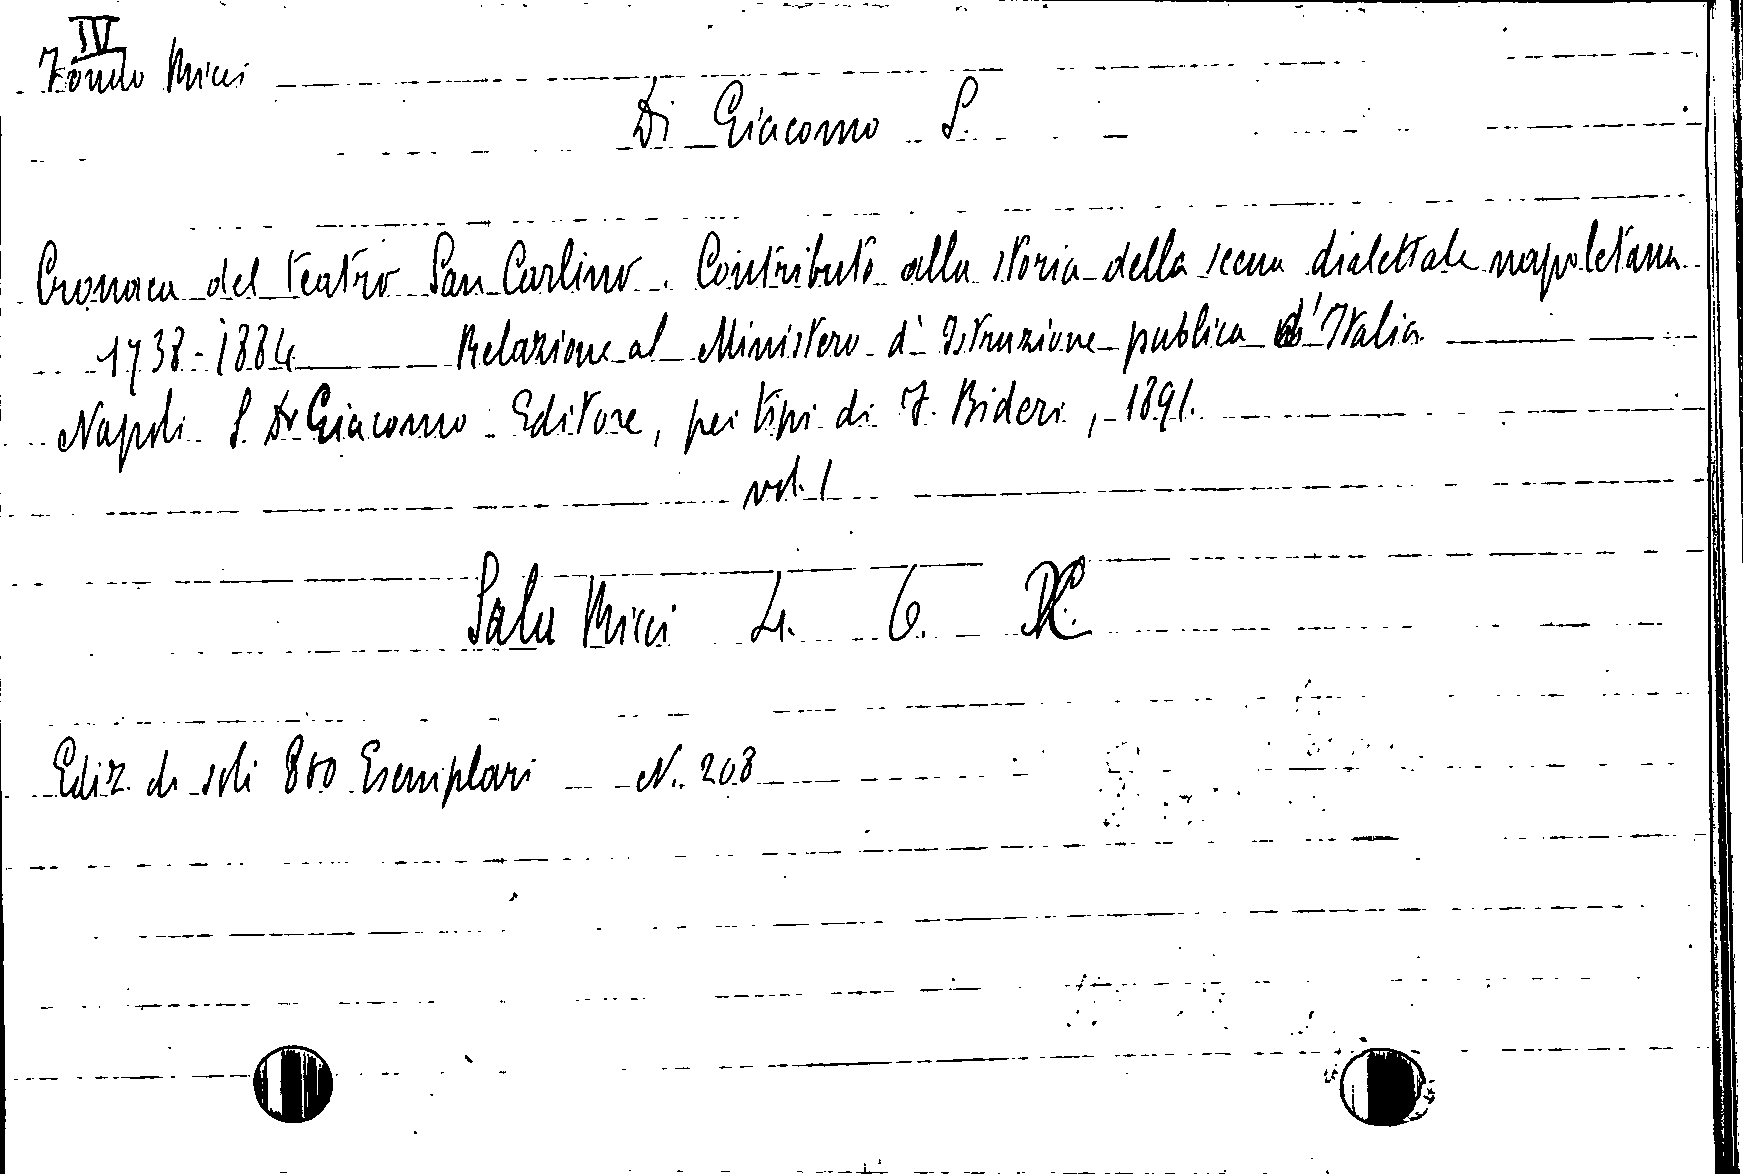 IV
Fondo Ricci
Di Giacomo S.
Cronaca del teatro San Carlino. Contributo alla storia della scena dialettale napoletana
1738-1884 Relazione al Ministero d' Istruzione publica d'Italia
Napoli S. Di Giacomo Editore, pei tipi di F. Bideri, 1891.
vol. 1
Sala Ricci 4. 6.
Ediz. di soli 800 Esemplari N. 208